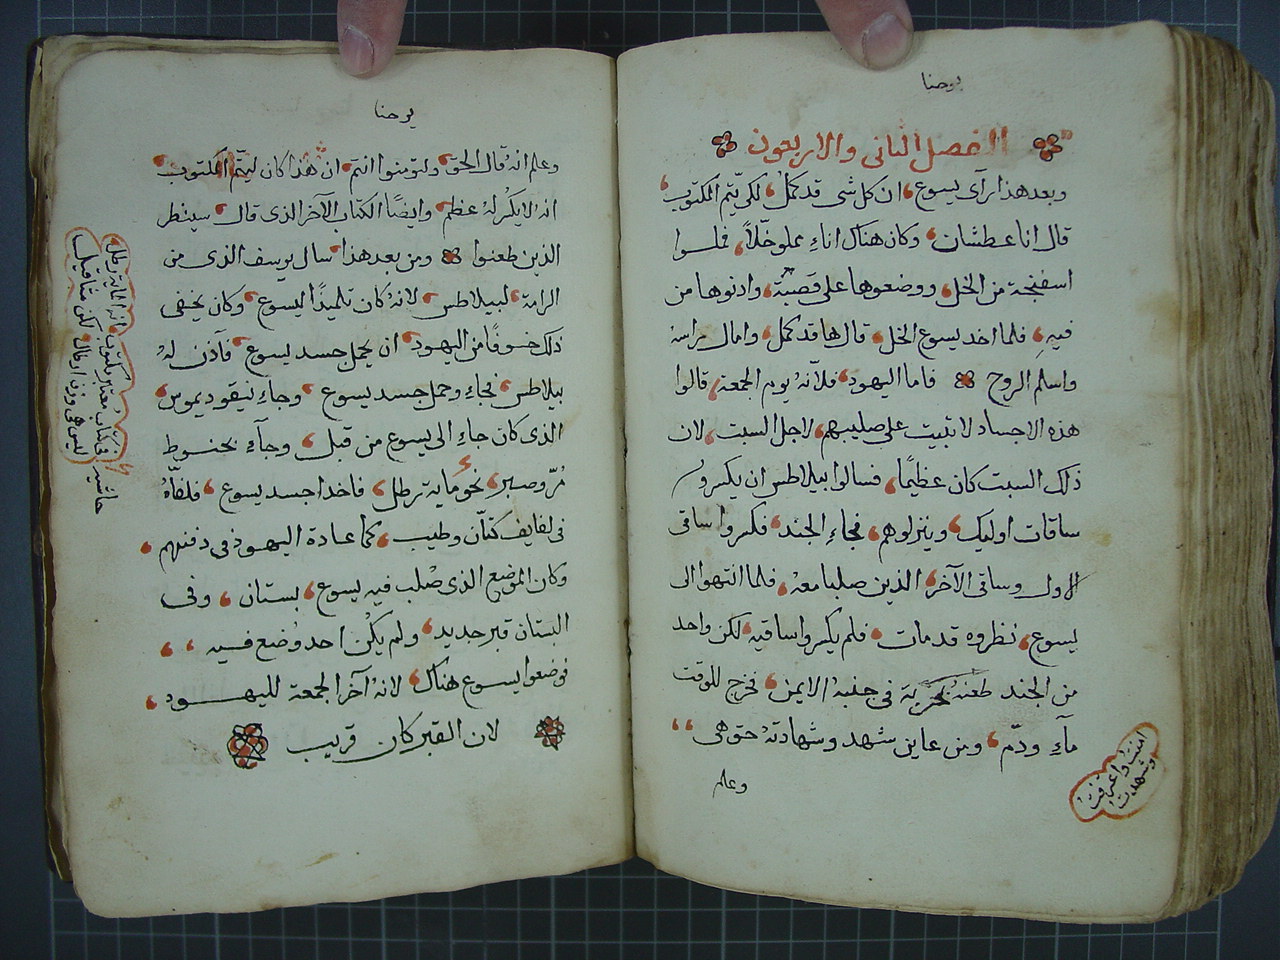 يوحنا
الفصل الثانى والاربعون
وبعد هذا رآى يسوع ان كل شى قد كمل لكى يتم المكتوب
قال انا عطشان وكان هناك اناء مملو خلاً فملوا
اسفنجة من الخل ووضعوها على قصبة وادنوها من
فيهِ فلما اخد يسوع الخل قال ها قد كمل وامال براسه
واسلم الروح فاما اليهود فلانه يوم الجمعة قالوا
هذه الاجساد لا تبيت على صليبهم لاجل السبت لان
ذلك السبت كان عظيمًا فسالوا بيلاطس ان يكسروا
ساقات اوليك وينزلوهم فجاء الجند فكسروا ساقى
الاول وساقى الآخر الذين صلبا معه فلما انتهوا الى
يسوع نظروه قد مات فلم يكسروا ساقيه لكن واحد
من الجند طعنه بحربة فى جنبه الايمن فخرج للوقت
مآء ودّم ومن عاين شهد وشهادته حق هى
وعلم
امنيت واعترفت
وشهدت
يوحنا
وعلم انه قال الحق ولتومنوا انتم ان هذا كان ليتم المكتوب
انه لا يكسر له عظم وايضًا الكتاب الآخر الذى قال سينظر
الذين طعنوا ومن بعد هذا سال يوسف الذى من
الرامة لبيلاطس لانه كان تلميدًا ليسوع وكان يخفى
ذلك خوفًا من اليهود ان يحمل جسد يسوع فآذن له
بيلاطس فجاء وحمل جسد يسوع وجاء نيقوديموس
الذى كان جاء الى يسوع من قبل وجآء بحنوط
مُرّ وصبر نحو ماية رطل فاخدا جسد يسوع فلفّاهُ
فى لفايف كتّان وطيب كما عادة اليهود فى دفنهم
وكان الموضع الذى صُلب فيه يسوع بستان وفى
البستان قبر جديد ولم يكُن احد وُضع فيه
فوضعوا يسوع هناك لانه آخر الجمعة لليهود
لان القبر كان قريب
ليس هى وزنة ارطال لكن مثاقيل